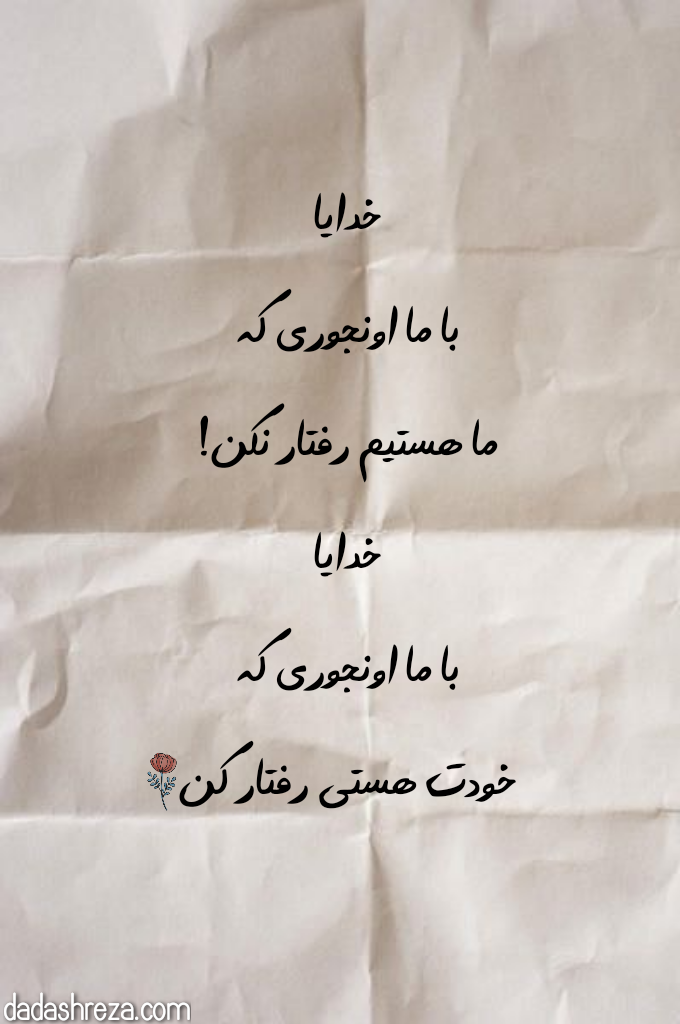 خدایا
با ما اونجوری که
ما هستیم رفتار نکن!
خدایا
با ما اونجوری که
خودت هستی رفتار کن
dadashreza.com